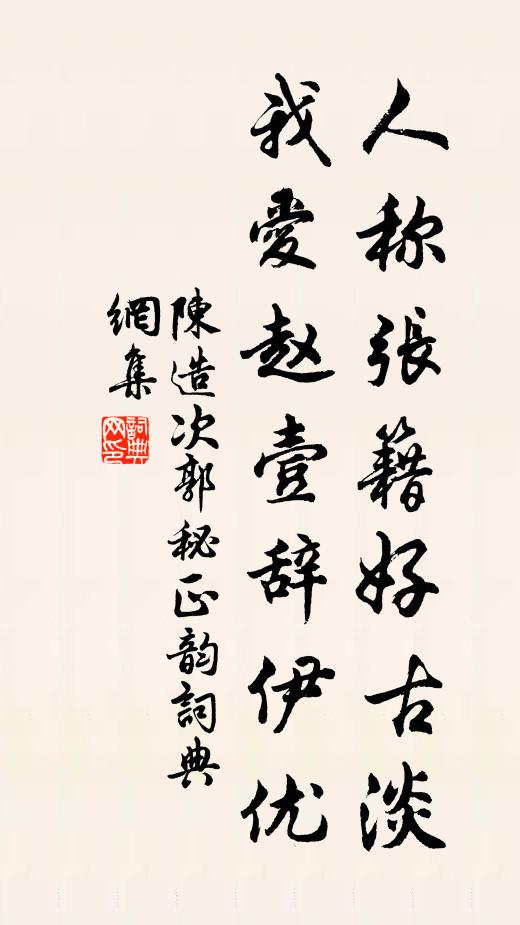 人称張籍好古淡
我愛赵壹辞伊优
陳造次郭秘正韵詞典
網集
詞典
网印